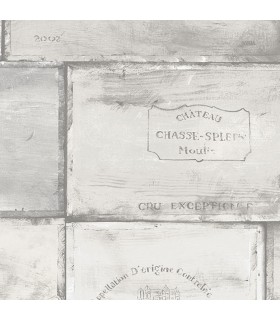 2002
CHÂTEAU
CHASSE-SPLEEN
Moulis
CRU EXCEPTIONNE
Appellation D'origine Controlée